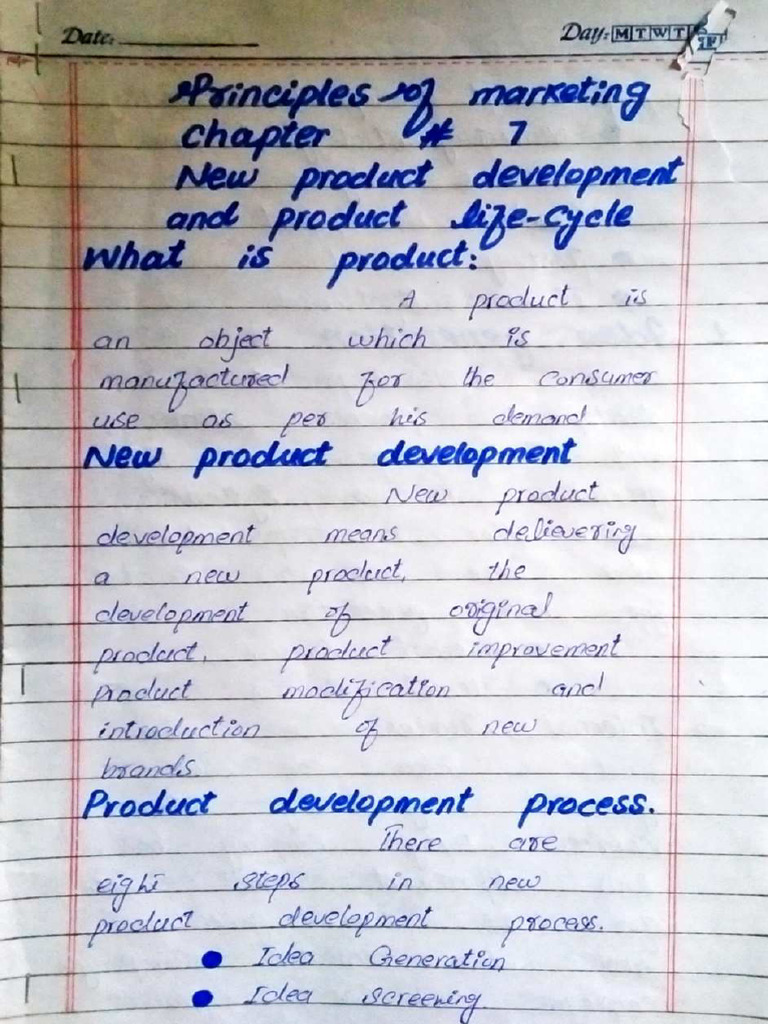 Date: Day: M T W T F
Principles of marketing
Chapter # 7
New product development
and product life-cycle
What is product:
A product is
an object which is
manufactured for the consumer
use as per his demand
New product development
New product
development means delievering
a new product, the
development of original
product, product improvement
product modification and
introduction of new
brands
Product development process.
There are
eight steps in new
product development process.
● Idea Generation
● Idea screening